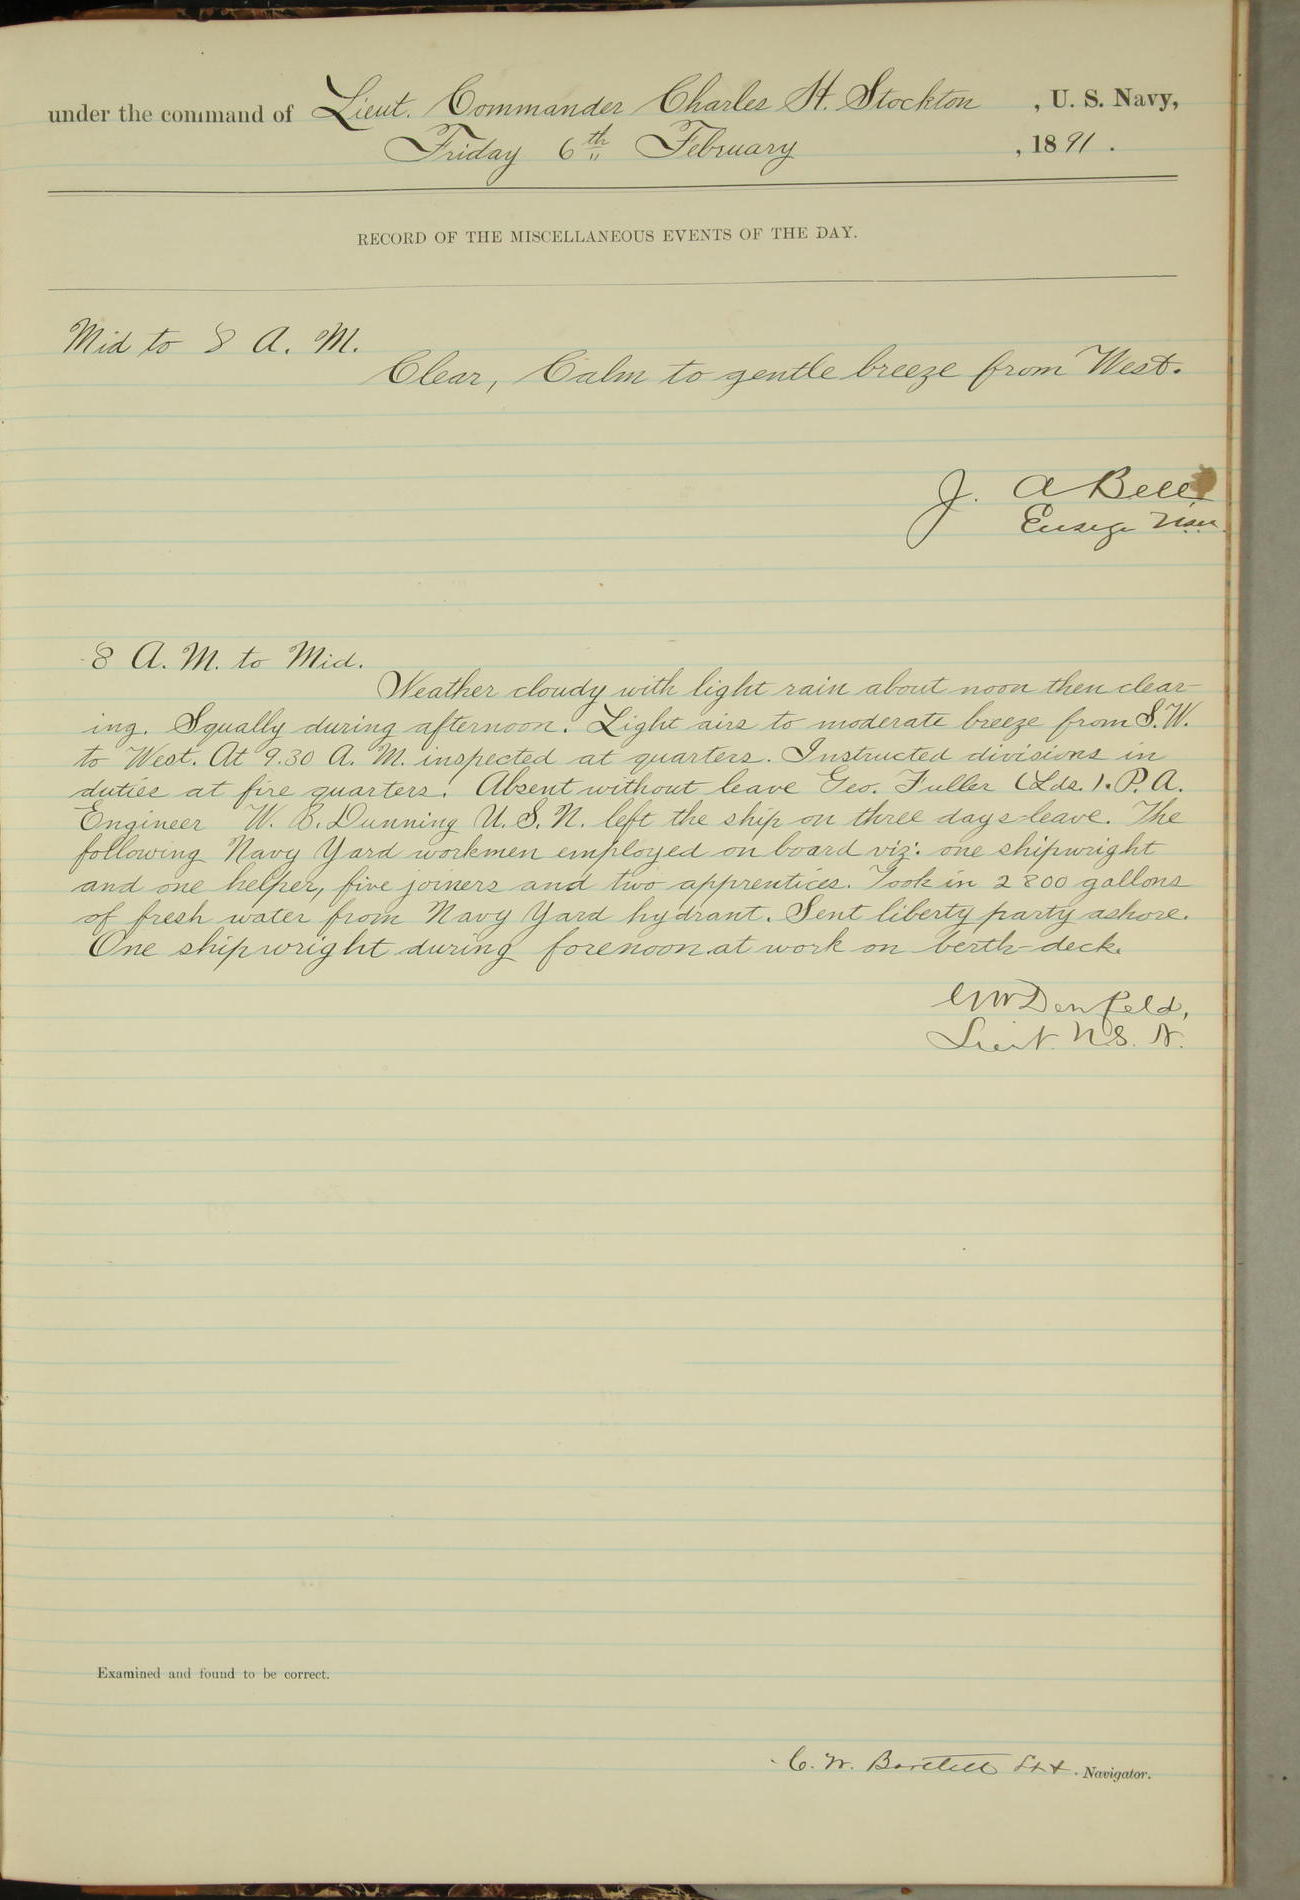 under the command of Lieut. Commander Charles H. Stockton , U. S. Navy,
Friday 6th February , 1891 .
RECORD OF THE MISCELLANEOUS EVENTS OF THE DAY.
Mid to 8 A. M.
Clear, Calm to gentle breeze from West.
J. A Bell
Ensign
8 A. M. to Mid.
Weather cloudy with light rain about noon then clear-
ing. Squally during afternoon. Light airs to moderate breeze from S. W.
to West. At 9.30 A. M. inspected at quarters. Instructed divisions in
duties at fire quarters. Absent without leave Geo. Fuller (Lds.). P. A.
Engineer W. B. Dunning U. S. N. left the ship on three days leave. The
following Navy Yard workmen employed on board viz: one shipwright
and one helper, five joiners and two apprentices. Took in 2800 gallons
of fresh water from Navy Yard hydrant. Sent liberty party ashore.
One shipwright during forenoon at work on berth-deck.
Denfeld,
Lieut. U.S. N.
Examined and found to be correct.
C. W. Bartlett Lt . Navigator.